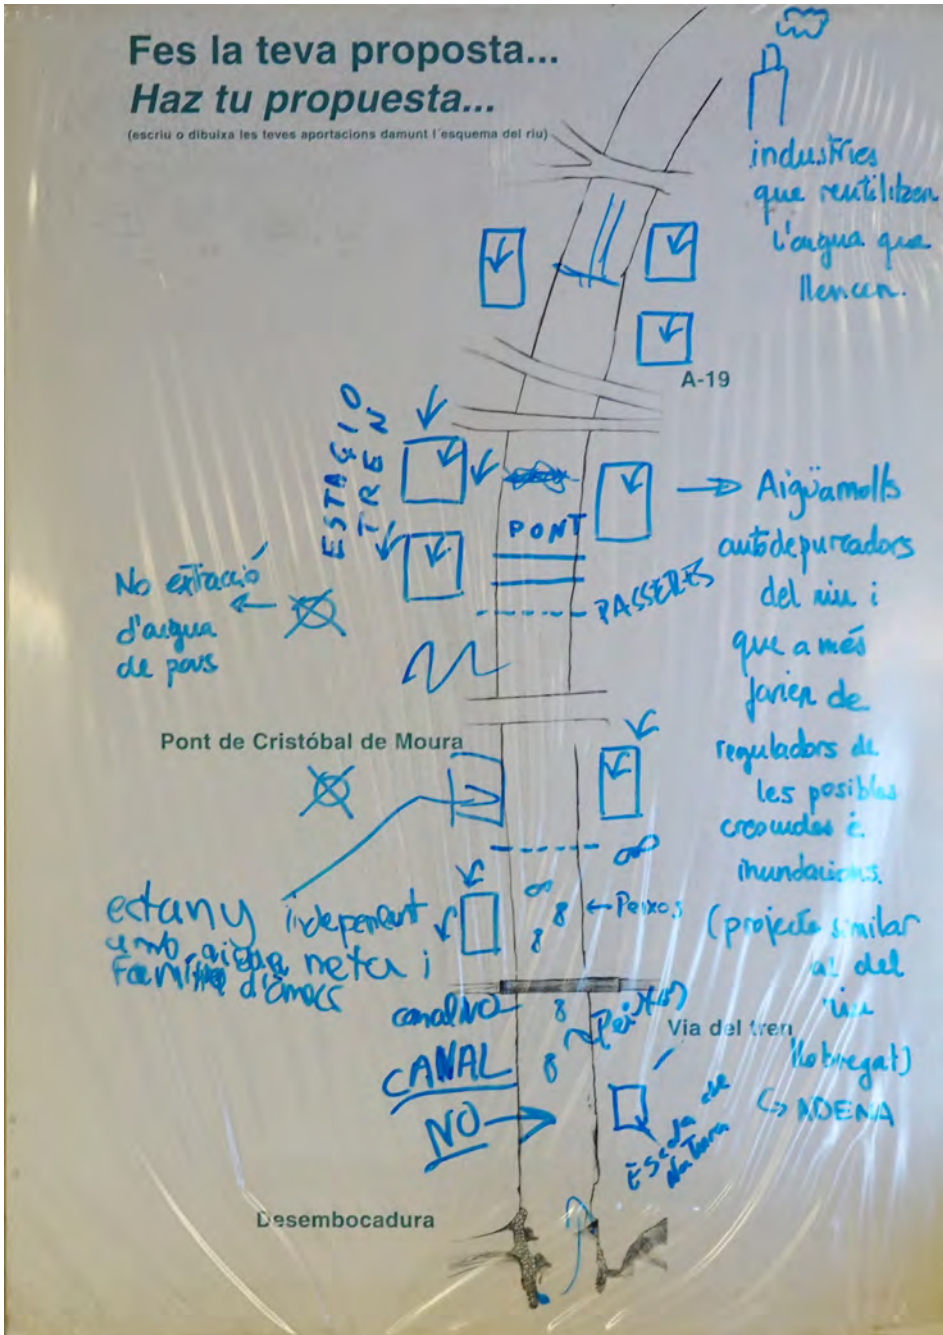 Fes la teva proposta...
Haz tu propuesta...
(escriu o dibuixa les teves aportacions damunt l'esquema del riu)
industries
que reutilitzen
l'aigua que
llencen.
A-19
ESTACIO
TREN
PONT
PASSERES
No extracció
d'aigua
de pous
Aigüamolls
autodepuradors
del riu i
que a més
farien de
reguladors de
les posibles
crescudes e
inundacions.
(projecte similar
al del
riu
llobregat)
ADENA
Pont de Cristóbal de Moura
estany independent
amb aigua neta i
família d'ànecs
Peixos
canal NO
Peixos
Via del tren
CANAL
NO
Escola de
Natura
Desembocadura